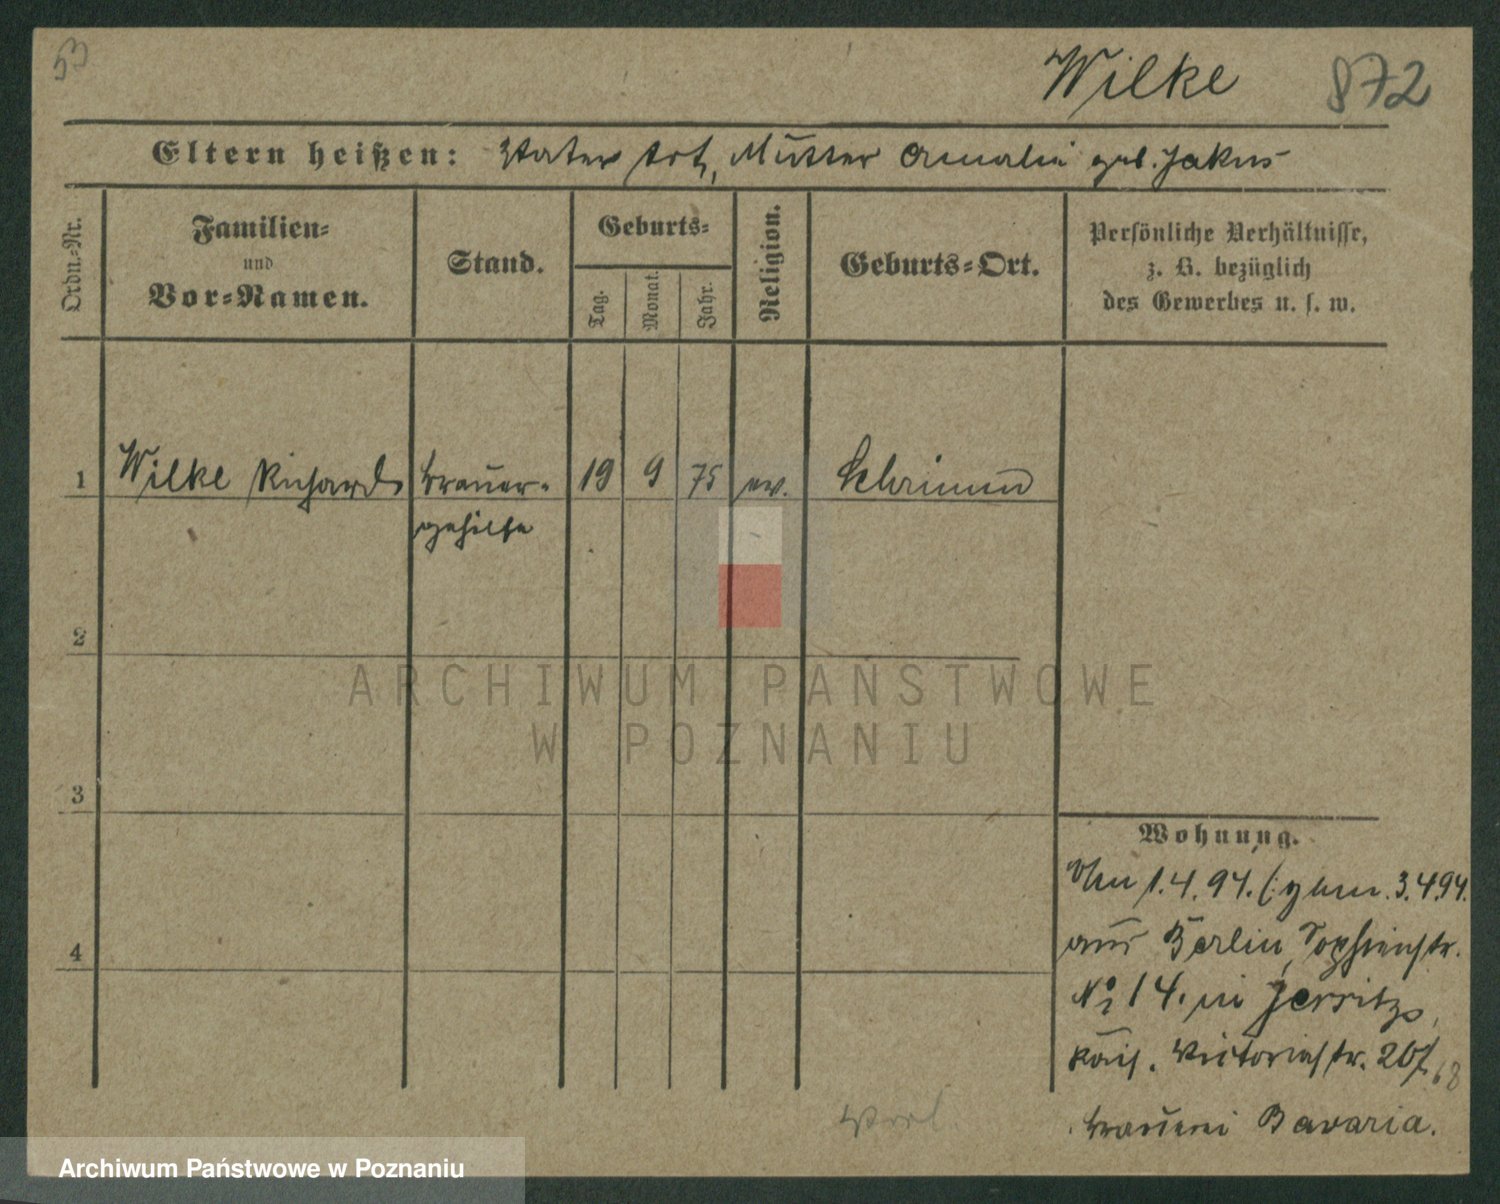 53
Wilke 872
Eltern heißen: Vater tot, Mutter Amalie geb. Jakus
Ordn.-Nr.
Familien-
und
Vor-Namen.
Stand.
Geburts-
Tag.
Monat.
Jahr.
Religion.
Geburts-Ort.
Persönliche Verhältnisse,
z. B. bezüglich
des Gewerbes u. s. w.
1 Wilke Richard Brauer- 19 9 75 ev. Schrimm
gehilfe
2
ARCHIWUM PAŃSTWOWE
W POZNANIU
3
4
Wohnung.
1.4.94. 3.4.94.
aus Berlin, Sophienstr.
No 14. in Jersitz,
Victoriastr. 20
Brauerei Bavaria.
Archiwum Państwowe w Poznaniu